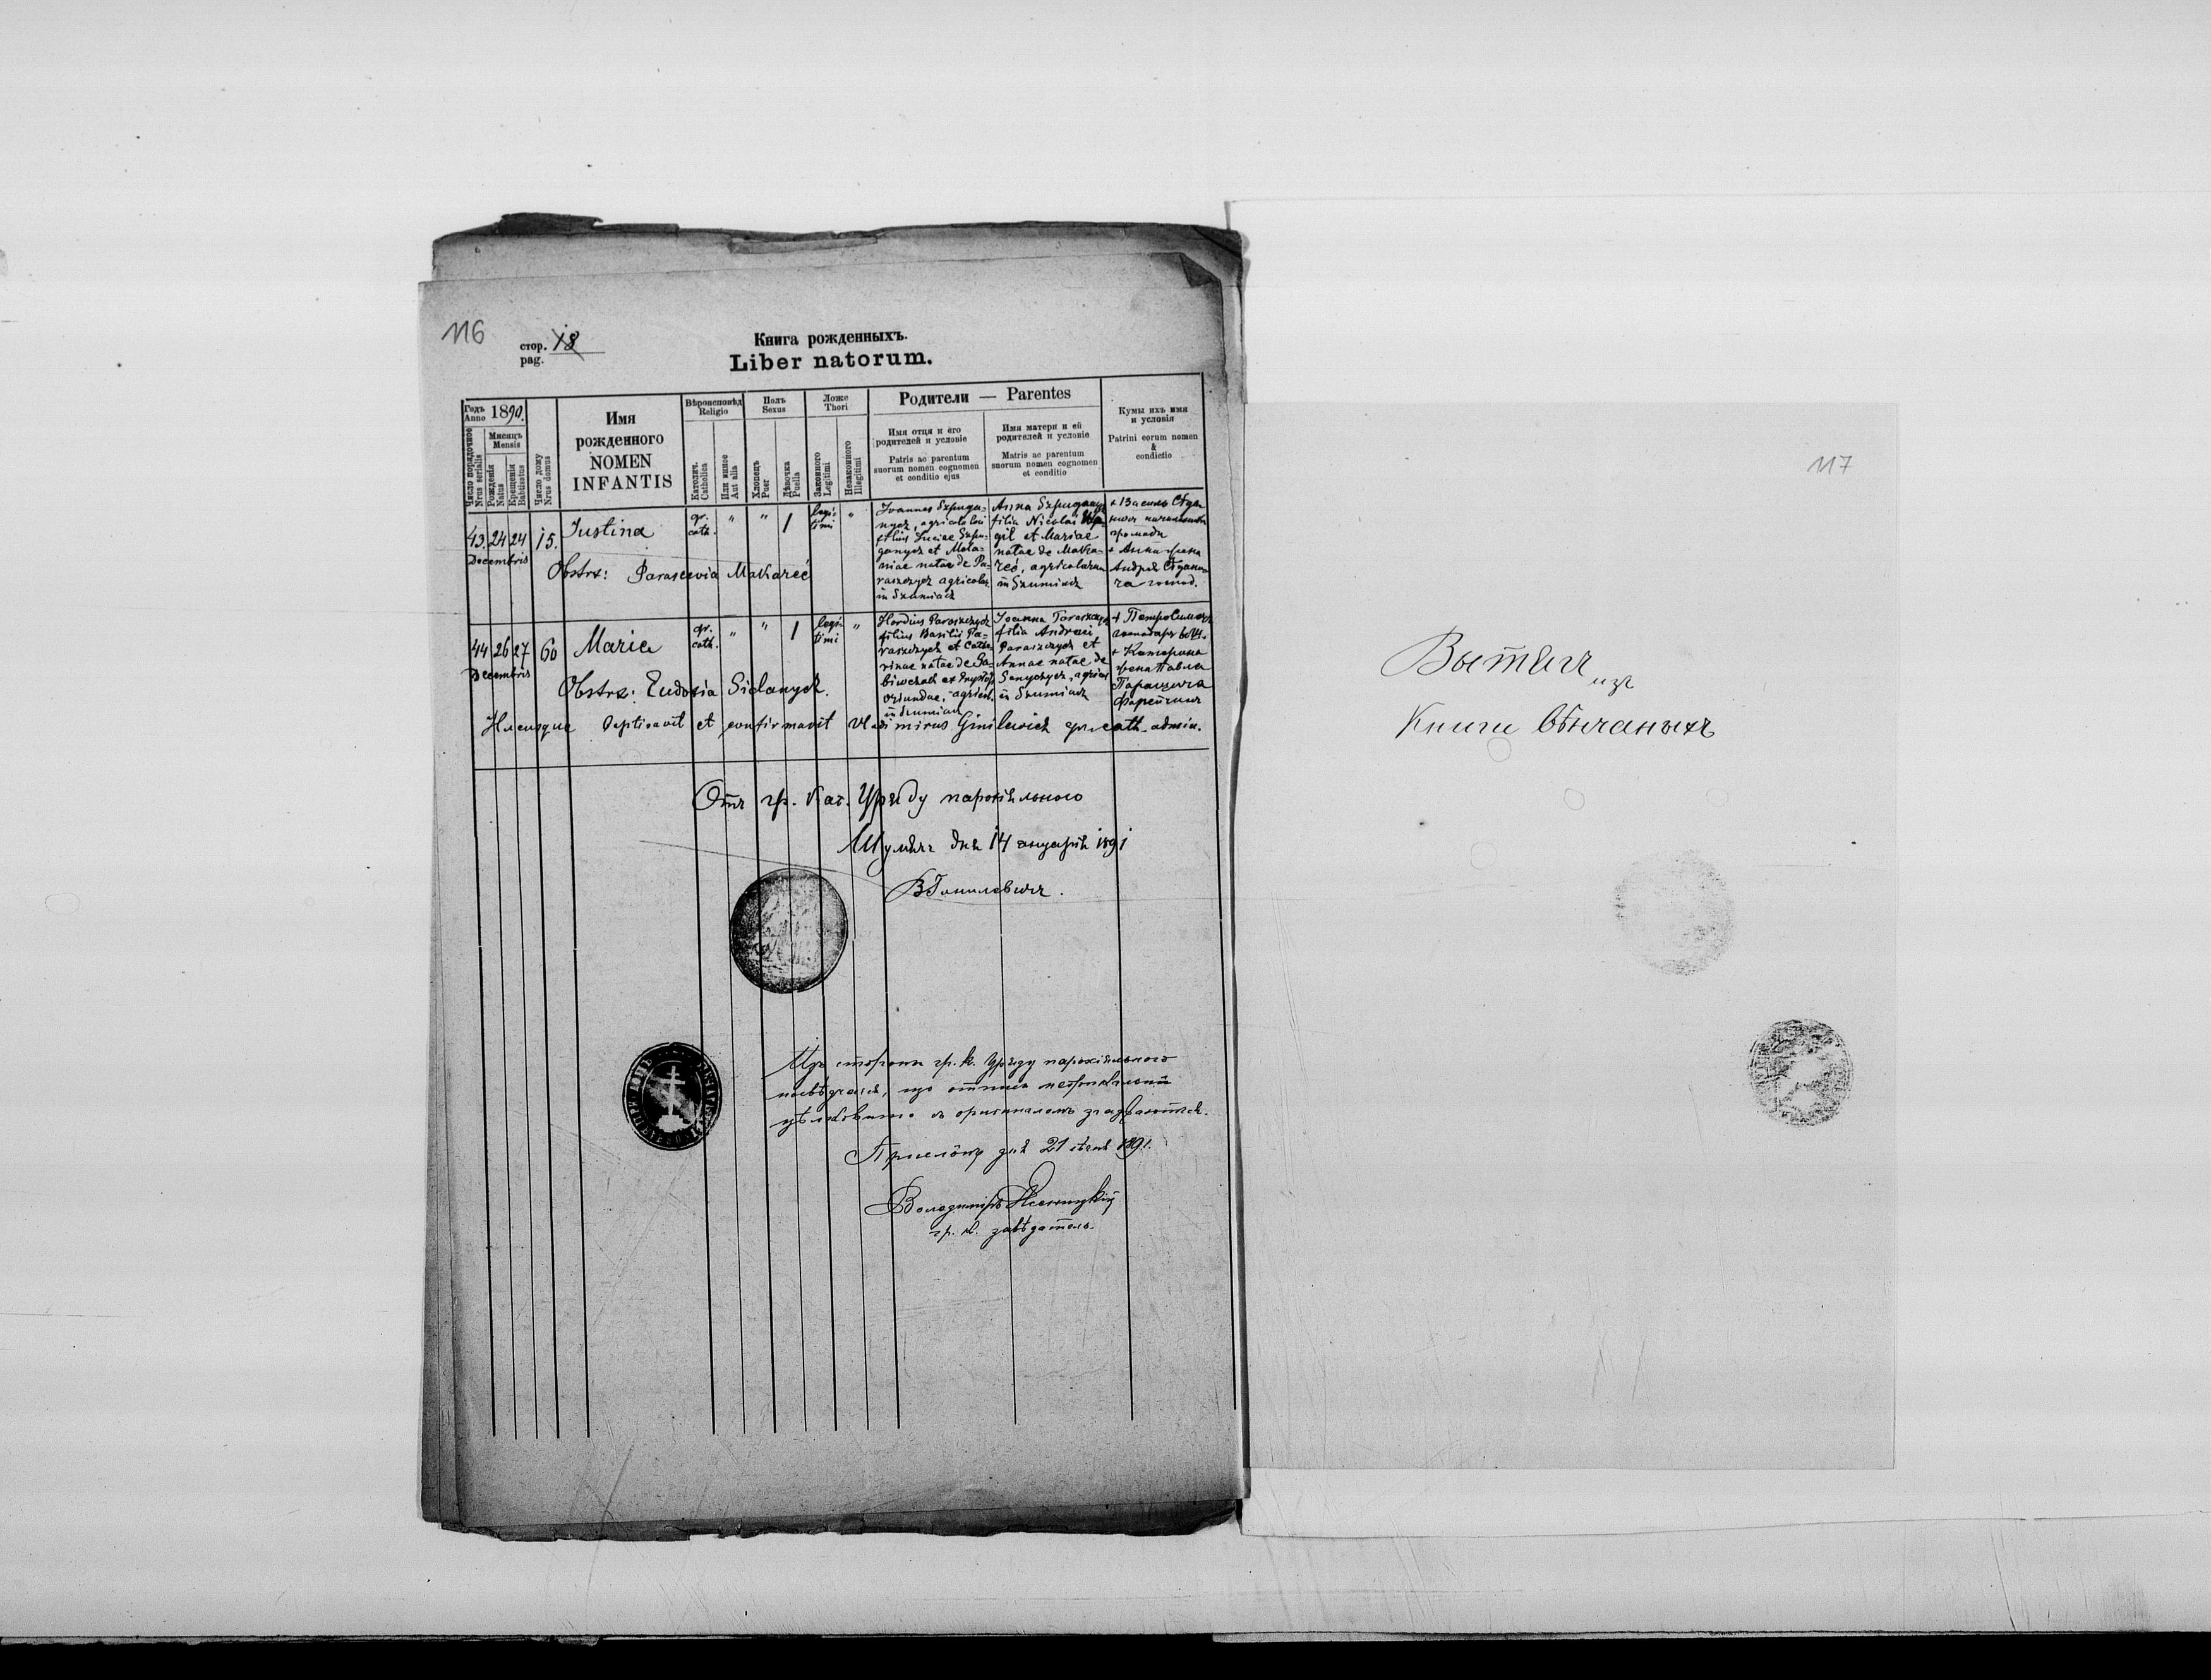 116
стор. 18
pag.
Книга рожденныхъ.
Liber natorum.
Годъ
Anno 1890.
Мисяць
Mensis
Число порядочное
Nrus serialis
Рожденія
Natus
Крещенія
Babtisatus
Число дому
Nrus domus
Имя
рожденного
NOMEN
INFANTIS
Вѣроисповѣд
Religio
Католич.
Catholica
Или инное
Aut alia
Полъ
Sexus
Хлопецъ
Puer
Дѣвочка
Puella
Ложе
Thori
Законного
Legitimi
Незаконного
Illegitimi
Родители — Parentes
Имя отця и его
родителей и условіе
Patris ac parentum
suorum nomen cognomen
et conditio ejus
Имя матери и ей
родителей и условіе
Matris ac parentum
suorum nomen cognomen
et conditio
Кумы ихъ имя
и условія
Patrini eorum nomen
&
condictio
43. 24 24 15. Justina
Decembris
gr.
cath. " " 1 legi-
timi "
Obstrx: Parascevia Makareć
Joannes Szpuga-
nycz, agricola
filius Luciae Szpu-
ganycz et Mela-
niae natae de Pa-
raszczycz agricolar.
in Szumiacz
Anna Szpuganycz
filia Nicolai
gil et Mariae
natae de Maka-
reć, agricolarum
in Szumiacz
+ Василь
громады
+ Анна жена
Андрея
44 26 27 60 Maria
Decembris
gr.
cath. " " 1 legi-
timi "
Obstrx: Eudoxia Sidanycz.
Hordius Paraszczycz
filius Basilii Pa-
raszczycz et Cathe-
rinae natae de Ga-
oriundae, agricol.
in Szumiacz
Joanna Paraszczycz
filia Andreae
Paraszczycz et
Annae natae de
Senyczycz, agricol
in Szumiacz
+ Петро
господарь
+ Катерина
жена Павла
Паращича
Hucusque baptisavit et confirmavit Vladimirus Ginilewicz gr. cath. admin.
Отъ гр. кат. Уряду парохіяльного
Шумячъ дня 14 януарія 1891
ВГинилевичъ.
Изъ стороны гр. к. Уряду парохіяльного
що отписъ метрикальный
съ оригиналомъ згаджаются.
Прислопъ дня 21 січня 1891.
Володимиръ
гр. к. завѣдатель.
117
Вытягъ
изъ
Книги вѣнчаныхъ